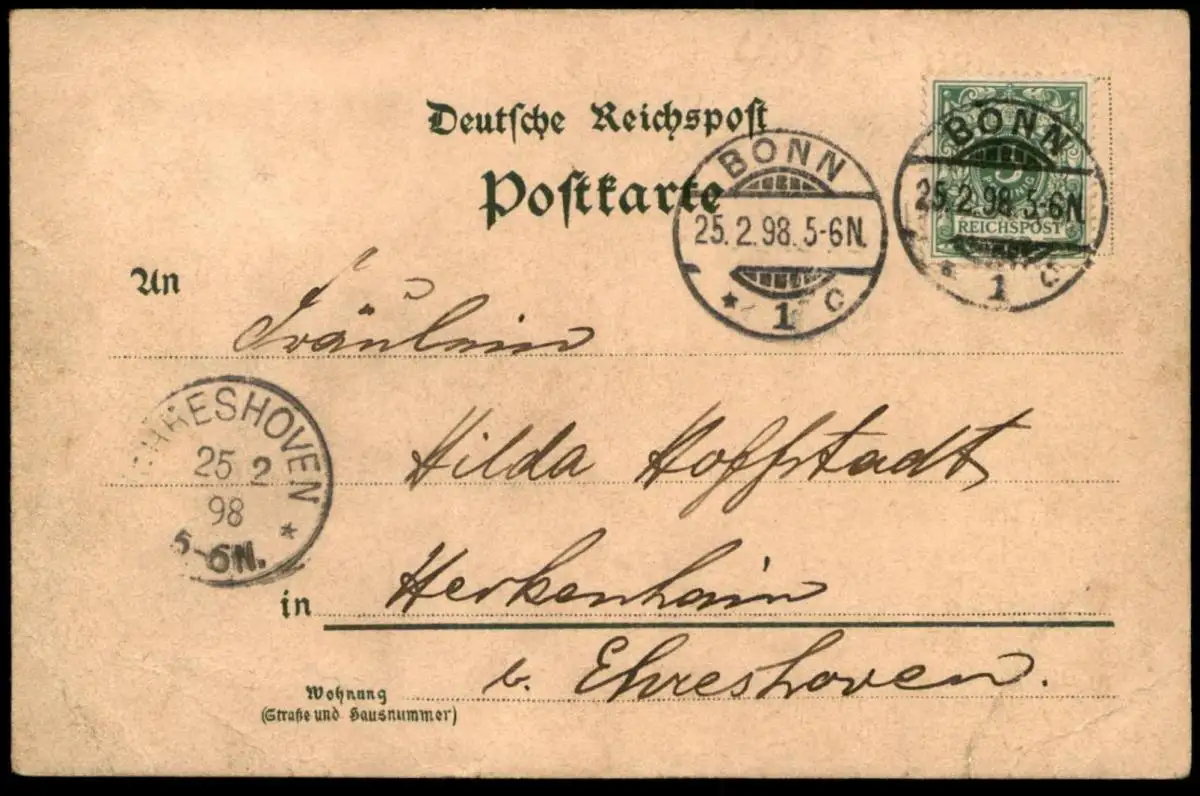 Deutsche Reichspost
Postkarte
BONN
25.2.98.5-6N.
* 1 c
BONN
25.2.98.5-6N.
* 1 c
5
REICHSPOST
An
Fräulein
EHRESHOVEN
25 2
98
5-6N.
*
Hilda Hoffstadt
in Herkenhain
b. Ehreshoven.
Wohnung
(Straße und Hausnummer)